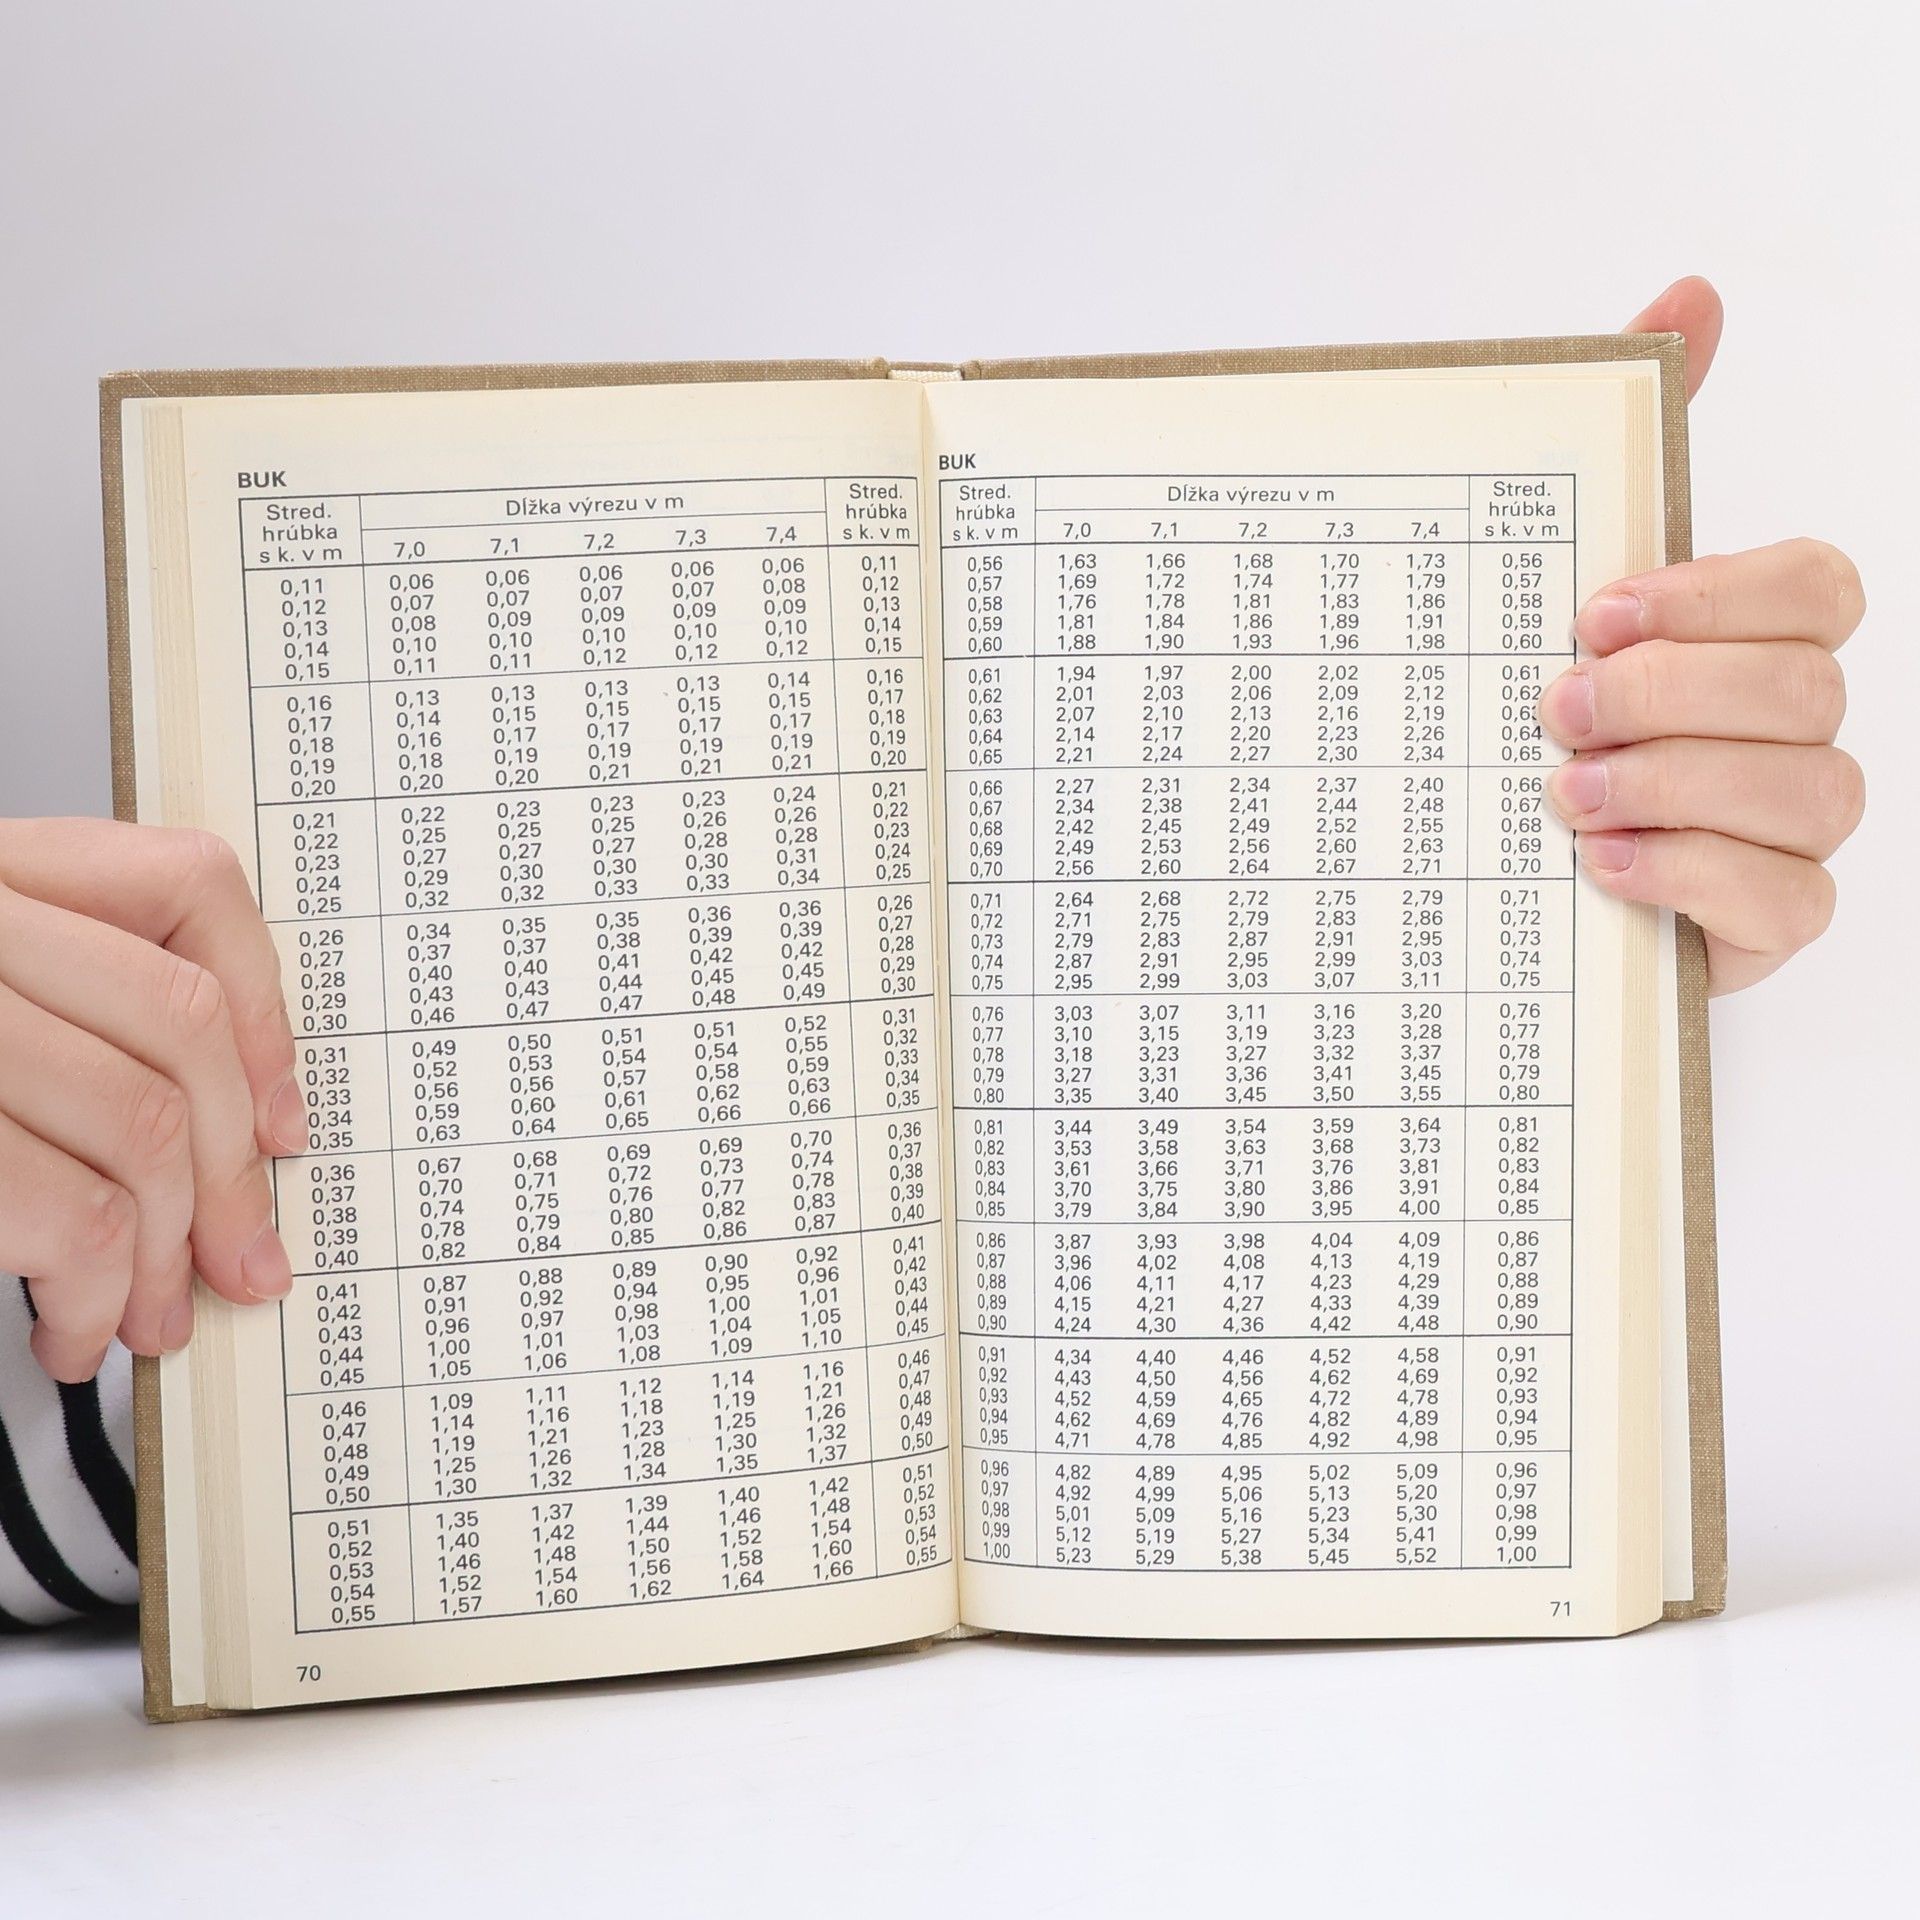 BUK
Stred. Dĺžka výrezu v m Stred.
hrúbka hrúbka
s k. v m 7,0 7,1 7,2 7,3 7,4 s k. v m
0,11 0,06 0,06 0,06 0,06 0,06 0,11
0,12 0,07 0,07 0,07 0,07 0,08 0,12
0,13 0,08 0,09 0,09 0,09 0,09 0,13
0,14 0,10 0,10 0,10 0,10 0,10 0,14
0,15 0,11 0,11 0,12 0,12 0,12 0,15
0,16 0,13 0,13 0,13 0,13 0,14 0,16
0,17 0,14 0,15 0,15 0,15 0,15 0,17
0,18 0,16 0,17 0,17 0,17 0,17 0,18
0,19 0,18 0,19 0,19 0,19 0,19 0,19
0,20 0,20 0,20 0,21 0,21 0,21 0,20
0,21 0,22 0,23 0,23 0,23 0,24 0,21
0,22 0,25 0,25 0,25 0,26 0,26 0,22
0,23 0,27 0,27 0,27 0,28 0,28 0,23
0,24 0,29 0,30 0,30 0,30 0,31 0,24
0,25 0,32 0,32 0,33 0,33 0,34 0,25
0,26 0,34 0,35 0,35 0,36 0,36 0,26
0,27 0,37 0,37 0,38 0,39 0,39 0,27
0,28 0,40 0,40 0,41 0,42 0,42 0,28
0,29 0,43 0,43 0,44 0,45 0,45 0,29
0,30 0,46 0,47 0,47 0,48 0,49 0,30
0,31 0,49 0,50 0,51 0,51 0,52 0,31
0,32 0,52 0,53 0,54 0,54 0,55 0,32
0,33 0,56 0,56 0,57 0,58 0,59 0,33
0,34 0,59 0,60 0,61 0,62 0,63 0,34
0,35 0,63 0,64 0,65 0,66 0,66 0,35
0,36 0,67 0,68 0,69 0,69 0,70 0,36
0,37 0,70 0,71 0,72 0,73 0,74 0,37
0,38 0,74 0,75 0,76 0,77 0,78 0,38
0,39 0,78 0,79 0,80 0,82 0,83 0,39
0,40 0,82 0,84 0,85 0,86 0,87 0,40
0,41 0,87 0,88 0,89 0,90 0,92 0,41
0,42 0,91 0,92 0,94 0,95 0,96 0,42
0,43 0,96 0,97 0,98 1,00 1,01 0,43
0,44 1,00 1,01 1,03 1,04 1,05 0,44
0,45 1,05 1,06 1,08 1,09 1,10 0,45
0,46 1,09 1,11 1,12 1,14 1,16 0,46
0,47 1,14 1,16 1,18 1,19 1,21 0,47
0,48 1,19 1,21 1,23 1,25 1,26 0,48
0,49 1,25 1,26 1,28 1,30 1,32 0,49
0,50 1,30 1,32 1,34 1,35 1,37 0,50
0,51 1,35 1,37 1,39 1,40 1,42 0,51
0,52 1,40 1,42 1,44 1,46 1,48 0,52
0,53 1,46 1,48 1,50 1,52 1,54 0,53
0,54 1,52 1,54 1,56 1,58 1,60 0,54
0,55 1,57 1,60 1,62 1,64 1,66 0,55
70
BUK
Stred. Dĺžka výrezu v m Stred.
hrúbka hrúbka
s k. v m 7,0 7,1 7,2 7,3 7,4 s k. v m
0,56 1,63 1,66 1,68 1,70 1,73 0,56
0,57 1,69 1,72 1,74 1,77 1,79 0,57
0,58 1,76 1,78 1,81 1,83 1,86 0,58
0,59 1,81 1,84 1,86 1,89 1,91 0,59
0,60 1,88 1,90 1,93 1,96 1,98 0,60
0,61 1,94 1,97 2,00 2,02 2,05 0,61
0,62 2,01 2,03 2,06 2,09 2,12 0,62
0,63 2,07 2,10 2,13 2,16 2,19
0,64 2,14 2,17 2,20 2,23 2,26 0,64
0,65 2,21 2,24 2,27 2,30 2,34 0,65
0,66 2,27 2,31 2,34 2,37 2,40 0,66
0,67 2,34 2,38 2,41 2,44 2,48 0,67
0,68 2,42 2,45 2,49 2,52 2,55 0,68
0,69 2,49 2,53 2,56 2,60 2,63 0,69
0,70 2,56 2,60 2,64 2,67 2,71 0,70
0,71 2,64 2,68 2,72 2,75 2,79 0,71
0,72 2,71 2,75 2,79 2,83 2,86 0,72
0,73 2,79 2,83 2,87 2,91 2,95 0,73
0,74 2,87 2,91 2,95 2,99 3,03 0,74
0,75 2,95 2,99 3,03 3,07 3,11 0,75
0,76 3,03 3,07 3,11 3,16 3,20 0,76
0,77 3,10 3,15 3,19 3,23 3,28 0,77
0,78 3,18 3,23 3,27 3,32 3,37 0,78
0,79 3,27 3,31 3,36 3,41 3,45 0,79
0,80 3,35 3,40 3,45 3,50 3,55 0,80
0,81 3,44 3,49 3,54 3,59 3,64 0,81
0,82 3,53 3,58 3,63 3,68 3,73 0,82
0,83 3,61 3,66 3,71 3,76 3,81 0,83
0,84 3,70 3,75 3,80 3,86 3,91 0,84
0,85 3,79 3,84 3,90 3,95 4,00 0,85
0,86 3,87 3,93 3,98 4,04 4,09 0,86
0,87 3,96 4,02 4,08 4,13 4,19 0,87
0,88 4,06 4,11 4,17 4,23 4,29 0,88
0,89 4,15 4,21 4,27 4,33 4,39 0,89
0,90 4,24 4,30 4,36 4,42 4,48 0,90
0,91 4,34 4,40 4,46 4,52 4,58 0,91
0,92 4,43 4,50 4,56 4,62 4,69 0,92
0,93 4,52 4,59 4,65 4,72 4,78 0,93
0,94 4,62 4,69 4,76 4,82 4,89 0,94
0,95 4,71 4,78 4,85 4,92 4,98 0,95
0,96 4,82 4,89 4,95 5,02 5,09 0,96
0,97 4,92 4,99 5,06 5,13 5,20 0,97
0,98 5,01 5,09 5,16 5,23 5,30 0,98
0,99 5,12 5,19 5,27 5,34 5,41 0,99
1,00 5,23 5,29 5,38 5,45 5,52 1,00
71